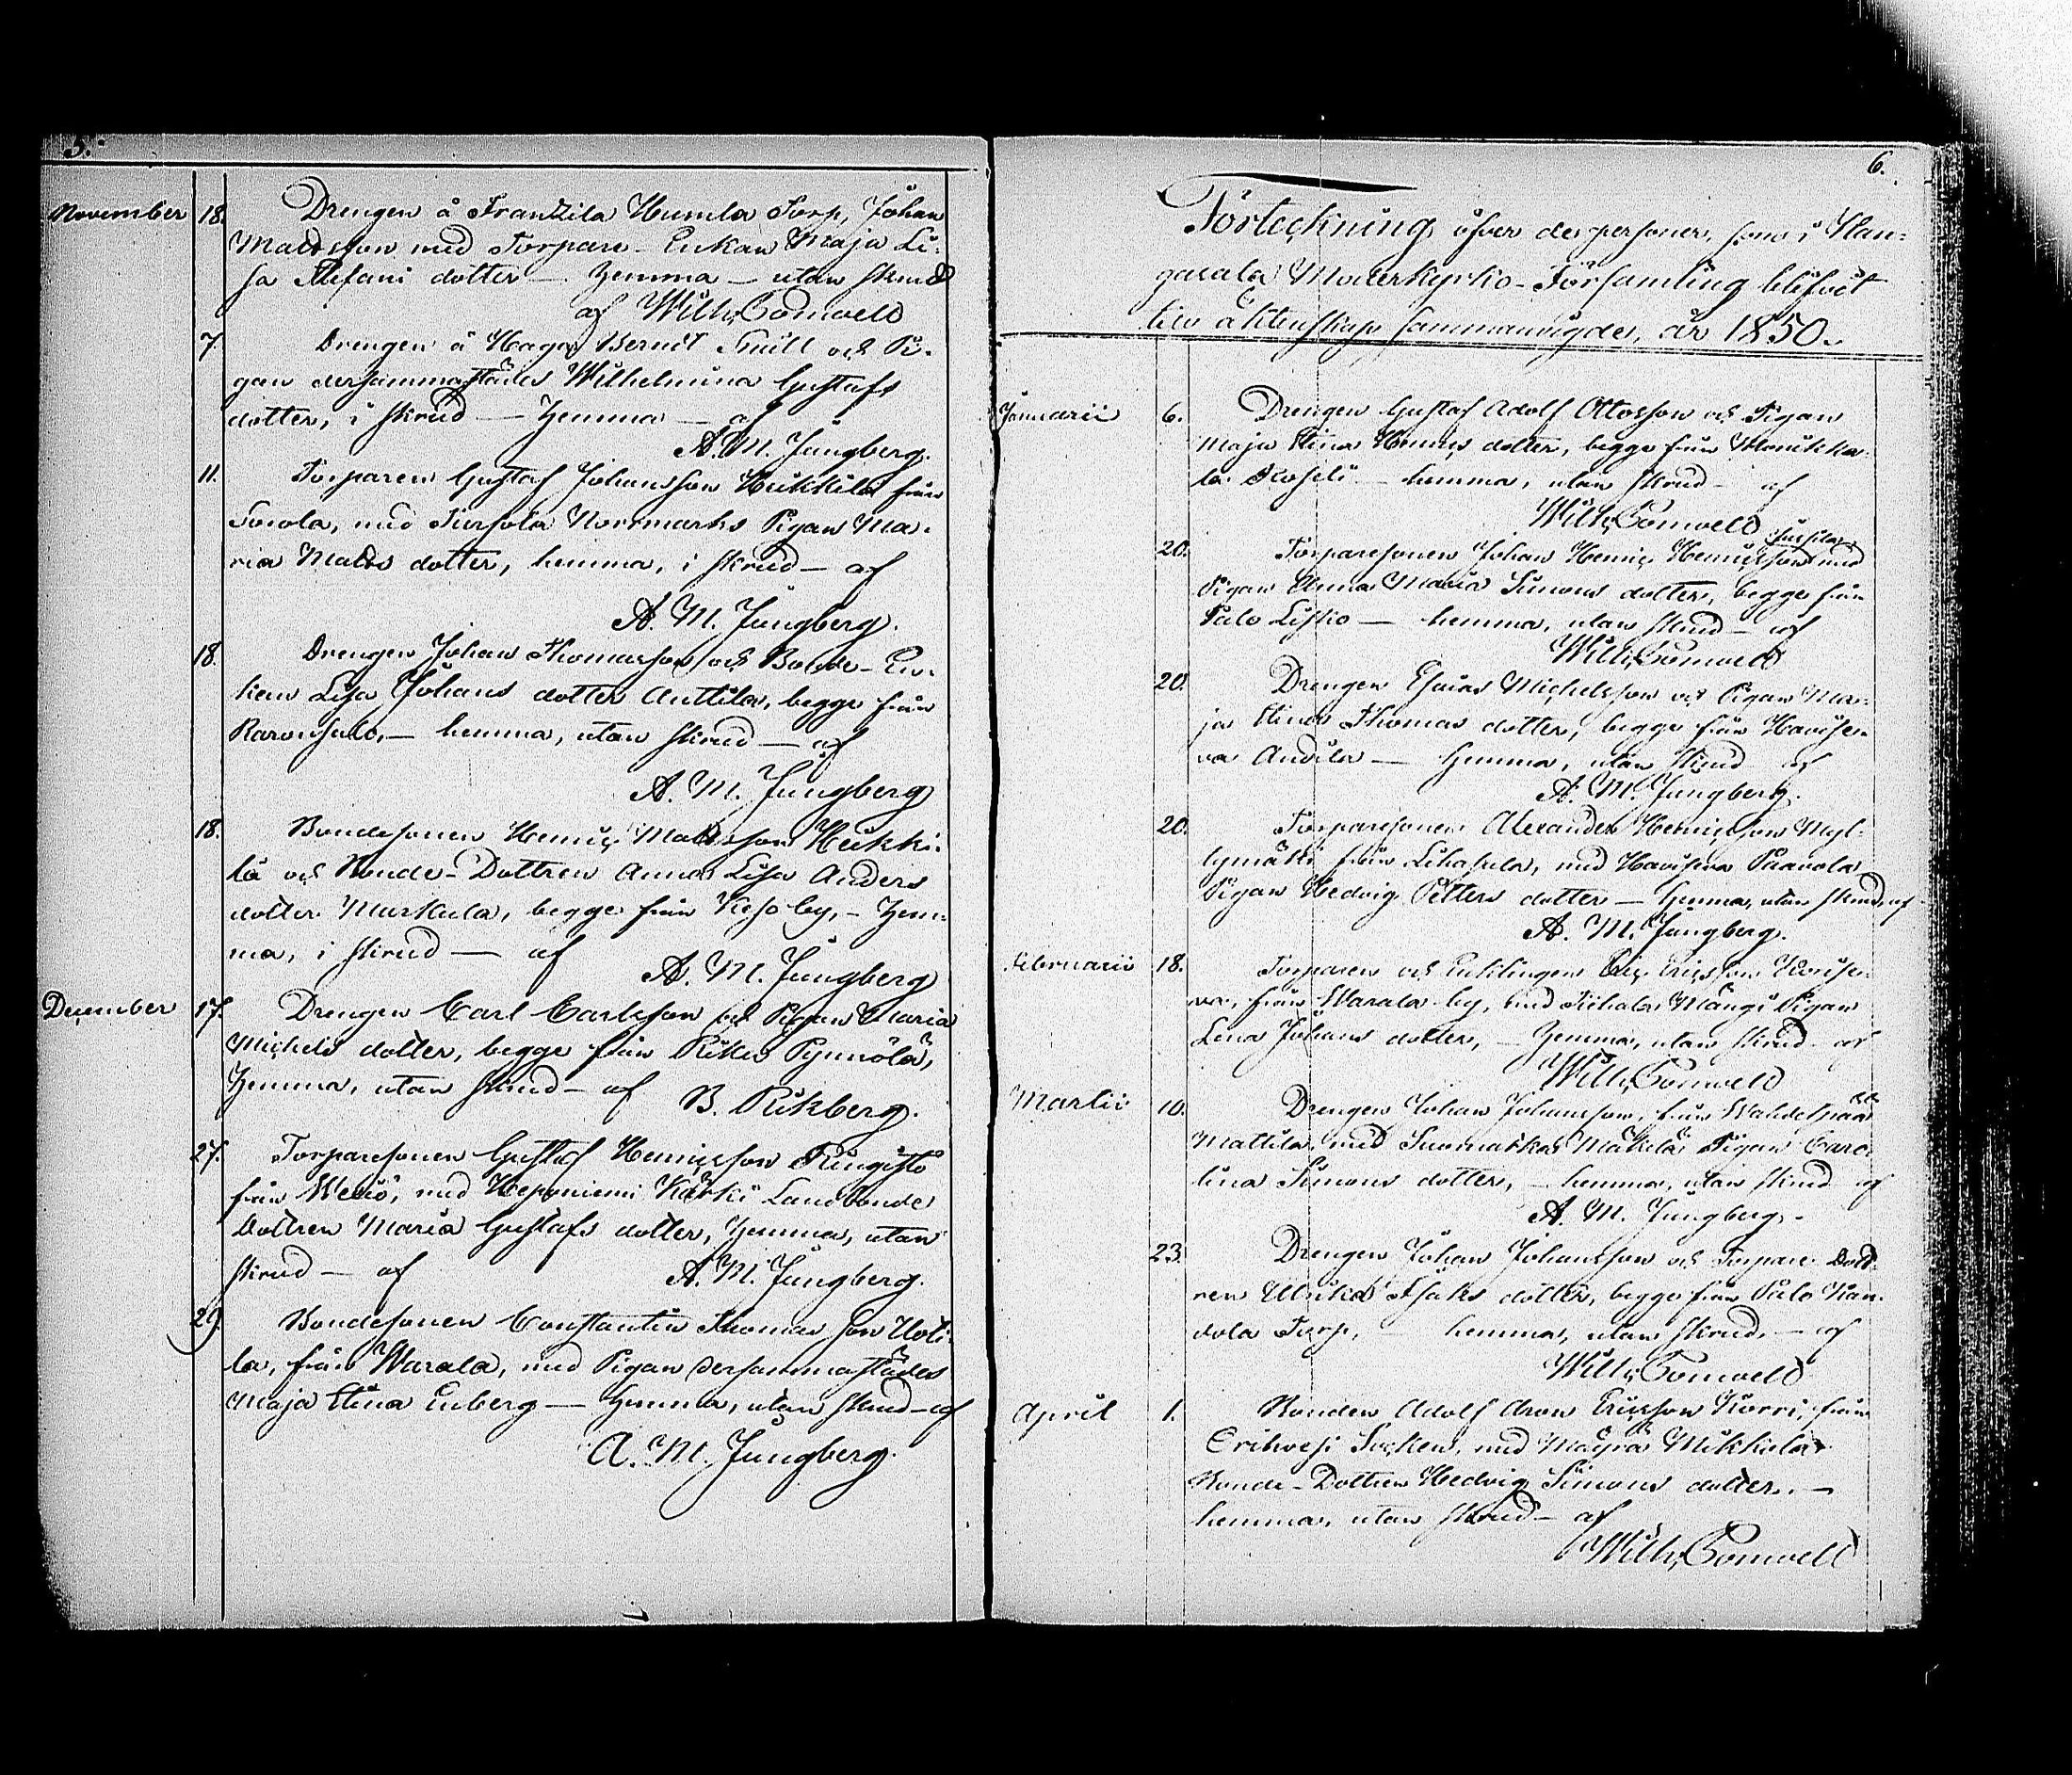 5.
November 18. Drengen å Frantzila Humla Torp, Johan
Mattsson med Torpare-Enkan Maja Li-
sa Stefani dotter — hemma — utan skrud
af Wilh, Comwell
7. Drengen å Haga Berndt Snill och Pi-
gan dersammastädes Wilhelmina Gustafs
dotter, i skrud — hemma — af
A. M. Jungberg.
11. Torparen Gustaf Johansson Heikkilä från
Toiola, med Tursola Norrmarks Pigan Ma-
ria Matts dotter, hemma, i skrud — af
A. M. Jungberg.
18. Drengen Johan Thomasson och Bonde-En-
kan Lisa Johans dotter Anttila, begge från
Raronsalo, — hemma, utan skrud — af
A. M. Jungberg
18. Bondesonen Henric Mattsson Heikki-
lä och Bonde-Dottren Anna Lisa Anders
dotter Markula, begge från Keso by, — hem-
ma, i skrud — af
A. M. Jungberg
December 17. Drengen Carl Carlsson och Pigan Maria
Michels dotter, begge från Riku Pynnölä,
hemma, utan skrud — af B. Rikberg.
27. Torparesonen Gustaf Henricsson Ringistö
från Weiö, med Heponiemi Kärki Landbonde
Dottren Maria Gustafs dotter, hemma, utan
skrud — af A. M. Jungberg.
29. Bondesonen Constantin Thomas son Uoti-
la, från Warala, med Pigan dersammastädes
Maja Stina Enberg — hemma, utan skrud — af
A. M. Jungberg.
6.
Förteckning öfver de personer, som i Kan-
gasala Moderkyrko-Församling blifvit
till äktenskap sammanvigde, år 1850.
Januarii 6. Drengen Gustaf Adolf Ottosson och Pigan
Maja Stina Henrics dotter, begge från
la — hemma, utan skrud — af
Wilh, Comwell
20. Torparesonen Johan Henric Henricsson med
Pigan Anna Maria Simons dotter, begge från
Palo Lisko — hemma, utan skrud — af
Wilh, Comwell
20. Drengen Esaias Michelsson och Pigan Ma-
ja Stina Thomas dotter, begge från Havise-
va Anðila — hemma, utan skrud af
A. M. Jungberg.
20. Torparesonen Alexander Henricsson Myl-
lymäki från Lihasula, med Havisева Paavola
Pigan Hedvig Petters dotter — hemma, utan skrud, af
A. M. Jungberg.
Februarii 18. Torparen och Enklingen Eric Ericsson
från Warala by, med Pigan
Lena Johans dotter, — hemma, utan skrud — af
Wilh, Comwell
Martii 10. Drengen Johan Johansson, från Wahdetpää
Mattila, med Suomatka Mäkilä Pigan Caro-
lina Simons dotter, — hemma, utan skrud af
A. M. Jungberg.
23. Drengen Johan Johansson och Torpare Dott-
ren Ulrika Isaks dotter, begge från Palo Kan-
dola Torp, — hemma, utan skrud, — af
Wilh, Comwell
April 1. Bonden Adolf Aron Ericsson Körri, från
Orihvesi Socken, med Mäyrä Mikkola
Bonde-Dottren Hedvig Simons dotter. —
hemma, utan skrud — af
Wilh, Comwell